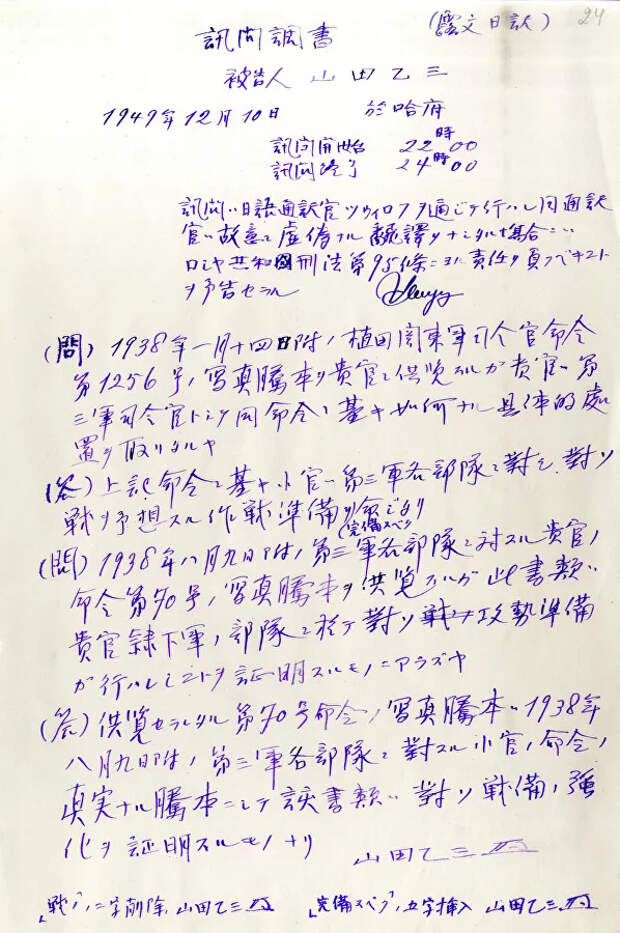 (露文日訳) 24
訊問調書
被告人 山田乙三
1949年12月10日 於哈府
訊問開始 22時00
訊問終了 24時00
訊問ハ日語通訳官ツウィロフヲ通ジテ行ハレ同通訳
官ハ故意ニ虚偽ナル飜譯ヲナシタル場合ニハ
ロシヤ共和国刑法第95條ニヨル責任ヲ負フベキコト
ヲ予告セラル
(問) 1938年一月十四日附ノ植田関東軍司令官命令
第1256号ノ写真謄本ヲ貴官ニ供覧スルガ貴官ハ第
三軍司令官トシテ同命令ニ基キ如何ナル具体的処
置ヲ取リタルヤ
(答) 上記命令ニ基キ小官ハ第三軍各部隊ニ対シ對ソ
戦ヲ予想スル作戦準備ヲ命ジタリ
(完備スベク)
(問) 1938年八月九日附ノ第三軍各部隊ニ対スル貴官ノ
命令第90号ノ写真謄本ヲ供覧スルガ此ノ書類ハ
貴官隷下軍ノ部隊ニ於テ對ソ戦ノ攻勢準備
ガ行ハレシコトヲ証明スルモノニアラズヤ
(答) 供覧セラレタル第90号命令ノ写真謄本ハ1938年
八月九日附ノ第三軍各部隊ニ對スル小官ノ命令ノ
真実ナル謄本ニシテ該書類ハ對ソ戦備ノ強
化ヲ証明スルモノナリ
山田乙三
「戦ノ」ノ二字削除 山田乙三 「完備スベク」ノ五字挿入 山田乙三